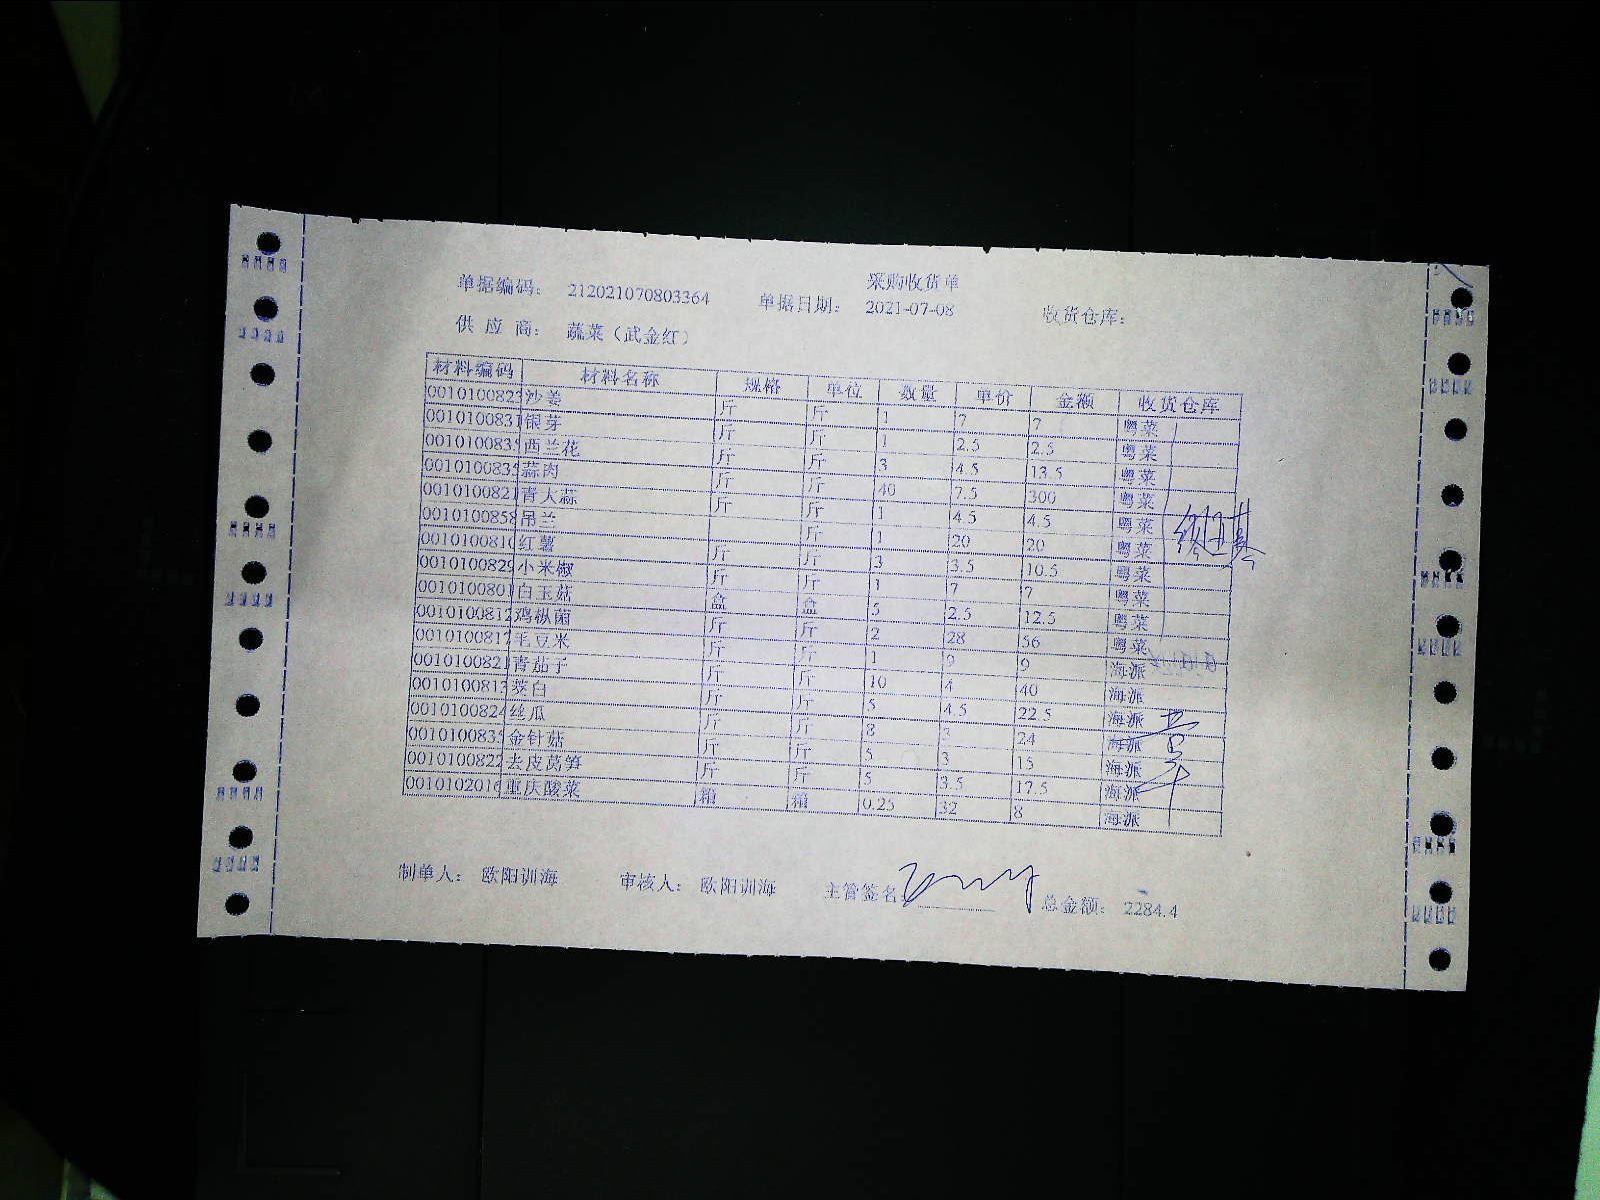 采购收货单
单据编码： 212021070803364 单据日期： 2021-07-08 收货仓库：
供 应 商： 蔬菜（武金红）
材料编码 材料名称 规格 单位 数量 单价 金额 收货仓库
0010100823 沙姜 斤 斤 1 7 7 粤菜
0010100831 银芽 斤 斤 1 2.5 2.5 粤菜
0010100835 西兰花 斤 斤 3 4.5 13.5 粤菜
0010100835 蒜肉 斤 斤 40 7.5 300 粤菜
0010100821 青大蒜 斤 斤 1 4.5 4.5 粤菜
0010100858 吊兰 斤 1 20 20 粤菜
0010100810 红薯 斤 斤 3 3.5 10.5 粤菜
0010100829 小米椒 斤 斤 1 7 7 粤菜
0010100801 白玉菇 盒 盒 5 2.5 12.5 粤菜
0010100812 鸡枞菌 斤 斤 2 28 56 粤菜
0010100817 毛豆米 斤 斤 1 9 9 海派
0010100821 青茄子 斤 斤 10 4 40 海派
0010100813 茭白 斤 斤 5 4.5 22.5 海派
0010100824 丝瓜 斤 斤 8 3 24 海派
0010100835 金针菇 斤 斤 5 3 15 海派
0010100822 去皮莴笋 斤 斤 5 3.5 17.5 海派
0010102016 重庆酸菜 箱 箱 0.25 32 8 海派
制单人： 欧阳训海 审核人： 欧阳训海 主管签名： 总金额： 2284.4